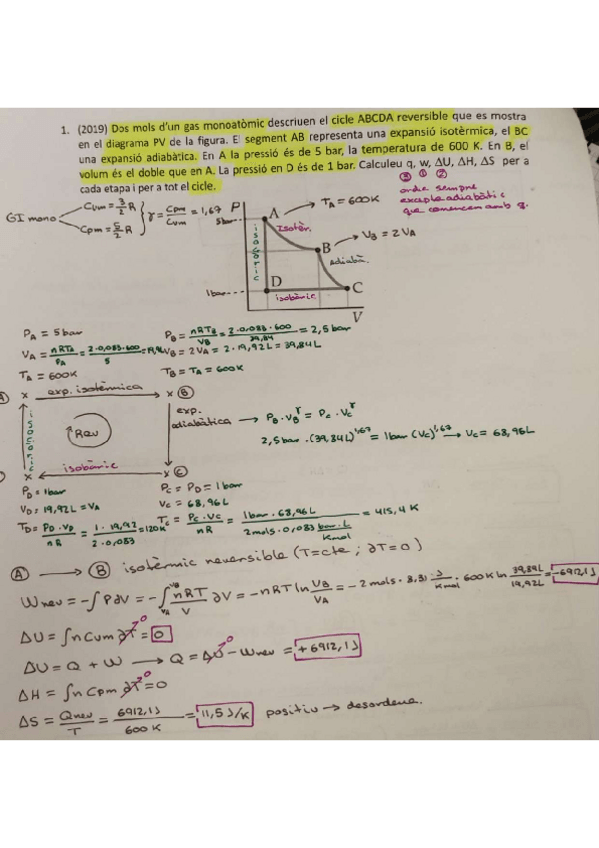 1. (2019) Dos mols d'un gas monoatòmic descriuen el cicle ABCDA reversible que es mostra
en el diagrama PV de la figura. El segment AB representa una expansió isotèrmica, el BC
una expansió adiabàtica. En A la pressió és de 5 bar, la temperatura de 600 K. En B, el
volum és el doble que en A. La pressió en D és de 1 bar. Calculeu q, w, ΔU, ΔH, ΔS per a
cada etapa i per a tot el cicle.
③ ① ②
ordre sempre
excepte adiabàtic
que comencem amb q.
GI mono
Cvm = 3/2 R
Cpm = 5/2 R
γ = Cpm/Cvm = 1,67
P
5bar
A
TA = 600K
Isotèr.
B
VB = 2VA
Adiabà.
isocoric
D
isobàric
C
1bar
V
PA = 5 bar
VA = nRTA/PA = 2·0,083·600/5 = 19,92
TA = 600K
PB = nRTB/VB = 2·0,083·600/39,84 = 2,5 bar
VB = 2VA = 2·19,92L = 39,84L
TB = TA = 600K
exp. isotèrmica
x x Ⓑ
isocoric
Rev
exp.
adiabàtica → PB·VB^γ = PC·VC^γ
2,5 bar·(39,84L)^1,67 = 1bar (Vc)^1,67 → Vc = 68,96L
isobàric
x x Ⓒ
PD = 1bar
VD = 19,92L = VA
TD = PD·VD/nR = 1·19,92/2·0,083 = 120K
PC = PD = 1bar
VC = 68,96L
TC = PC·VC/nR = 1bar·68,96L/2mols·0,083 bar·L/Kmol = 415,4 K
Ⓐ → Ⓑ isotèrmic reversible (T=cte ; ∂T=0)
Wrev = -∫PdV = -∫ nRT/V ∂V = -nRT ln VB/VA = -2 mols·8,31 J/Kmol·600K ln 39,84L/19,92L = -6912,1J
ΔU = ∫nCvm ∂T⁰ = 0
ΔU = Q + W → Q = ΔU⁰ - Wrev = +6912,1J
ΔH = ∫nCpm ∂T⁰ = 0
ΔS = Qrev/T = 6912,1J/600K = 11,5 J/K positiu → desordena.